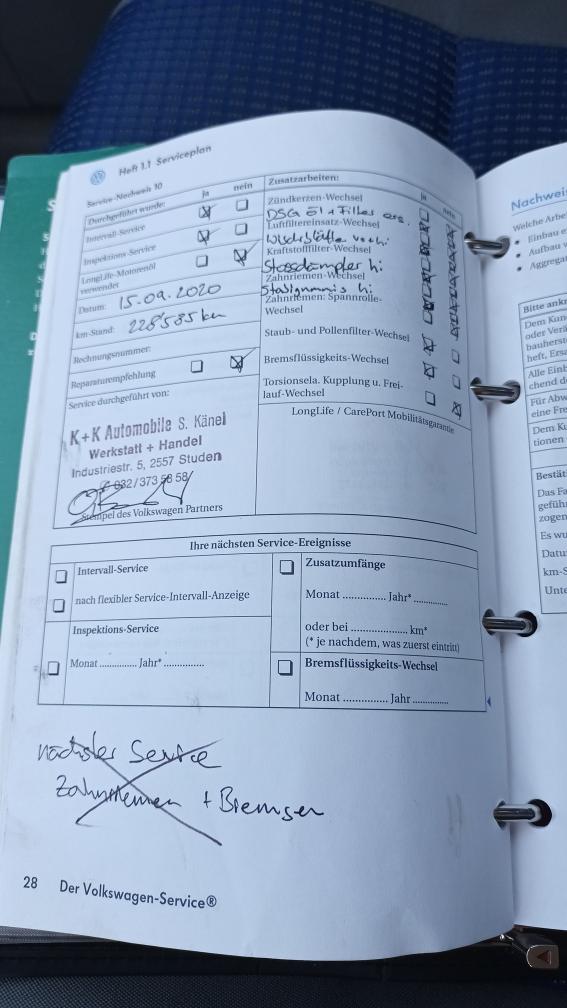 Heft 1.1 Serviceplan
Service-Nachweis 10
Durchgeführt wurde: ja nein
Intervall-Service
Inspektions-Service
LongLife-Motorenöl
verwendet
Datum: 15.09.2020
km-Stand: 228585 km
Rechnungsnummer:
Reparaturempfehlung
Service durchgeführt von:
K+K Automobile S. Känel
Werkstatt + Handel
Industriestr. 5, 2557 Studen
032/373 58 58
Stempel des Volkswagen Partners
Zusatzarbeiten: ja nein
Zündkerzen-Wechsel
DSG öl + Filter
Luftfiltereinsatz-Wechsel
Kraftstofffilter-Wechsel
Stossdämpfer hi
Zahnriemen-Wechsel
hi
Zahnriemen: Spannrolle-
Wechsel
Staub- und Pollenfilter-Wechsel
Bremsflüssigkeits-Wechsel
Torsionsela. Kupplung u. Frei-
lauf-Wechsel
LongLife / CarePort Mobilitätsgarantie
Ihre nächsten Service-Ereignisse
Intervall-Service
nach flexibler Service-Intervall-Anzeige
Inspektions-Service
Monat .............. Jahr* ...............
Zusatzumfänge
Monat ............... Jahr* .............
oder bei ................... km*
(* je nachdem, was zuerst eintritt)
Bremsflüssigkeits-Wechsel
Monat ............... Jahr .............
nächster Service
Zahnriemen + Bremsen
28 Der Volkswagen-Service®
Nachweis
Welche Arbe
• Einbau e
• Aufbau v
• Aggregat
Bitte ankr
Dem Kun
oder Verä
bauherste
heft, Ersa
Alle Einb
chend de
Für Abw
eine Fre
Dem Ku
tionen
Bestät
Das Fa
gefüh
zogen
Es wu
Datu
km-S
Unte